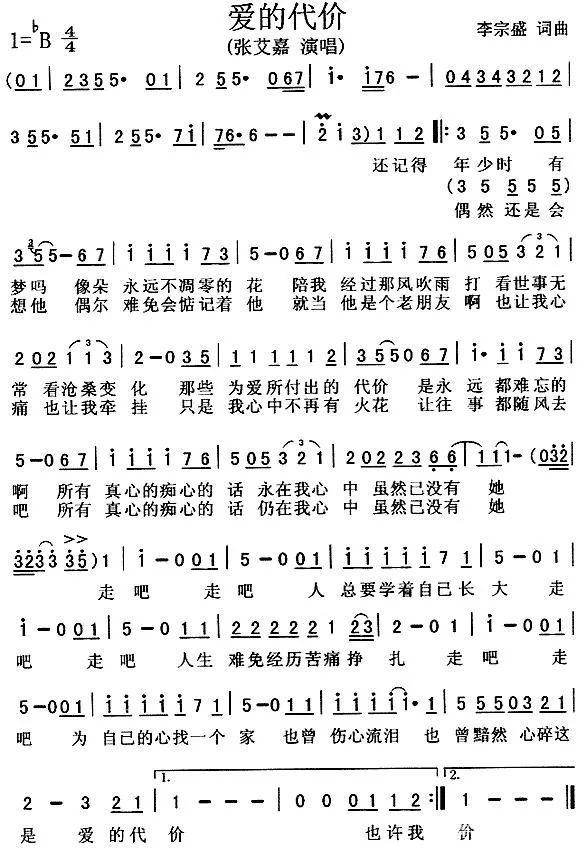 爱的代价
1=♭B 4/4
(张艾嘉 演唱)
李宗盛 词曲
(0 1 | 2 3 5 5· 0 1 | 2 5 5· 0 6 7 | i· i 7 6 - | 0 4 3 4 3 2 1 2 |
3 5 5· 5 1 | 2 5 5· 7 i | 7 6· 6 - - | 2 i 3) 1 1 2 |: 3 5 5· 0 5 |
还记得 年少时 有
(3 5 5 5 5)
偶然还是会
3 5 5 - 6 7 | i i i i 7 3 | 5 - 0 6 7 | i i i i 7 6 | 5 0 5 3 2 1 |
梦吗 像朵 永远不凋零的 花 陪我 经过那风吹雨 打 看世事无
想他 偶尔 难免会惦记着 他 就当 他是个老朋友 啊 也让我心
2 0 2 1 1 3 | 2 - 0 3 5 | 1 1 1 1 1 2 | 3 5 5 0 6 7 | i· i i 7 3 |
常 看沧桑变 化 那些 为爱所付出的 代价 是永 远 都难忘的
痛也让我牵 挂 只是 我心中不再有 火花 让往 事 都随风去
5 - 0 6 7 | i i i i 7 6 | 5 0 5 3 2 1 | 2 0 2 2 3 6 6 | 1 1 1 - (0 3 2 |
啊 所有 真心的痴心的 话 永在我心 中 虽然已没有 她
吧 所有 真心的痴心的 话 仍在我心 中 虽然已没有 她
3 2 3 3 3 5) 1 | i - 0 0 1 | 5 - 0 0 1 | i i i i i 7 1 | 5 - 0 0 1 |
走 吧 走 吧 人 总要学着自己长 大 走
i - 0 0 1 | 5 - 0 1 1 | 2 2 2 2 2 1 2 3 | 2 - 0 1 | i - 0 0 1 |
吧 走 吧 人生 难免经历苦痛挣 扎 走 吧 走
5 - 0 0 1 | i i i i i 7 1 | 5 - 0 0 1 | i i i i i· 1 | 5 5 5 0 3 2 1 |
吧 为 自己的心找一个 家 也曾 伤心流泪 也 曾黯然 心碎这
1. 2.
2 - 3 2 1 | 1 - - - | 0 0 0 1 1 2 :| 1 - - - |
是 爱的代 价 也许我 价